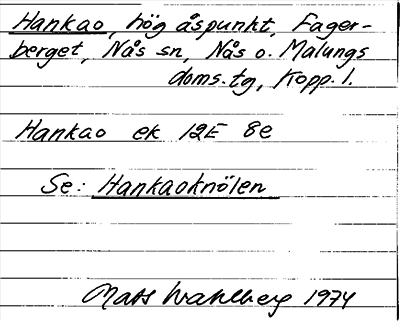 Hankao, hög åspunkt, Fager-
berget, Nås sn, Nås o. Malungs
doms.tg, Kopp. l.
Hankao ek 12E 8e
Se: Hankaoknölen
Mats Wahlberg 1974